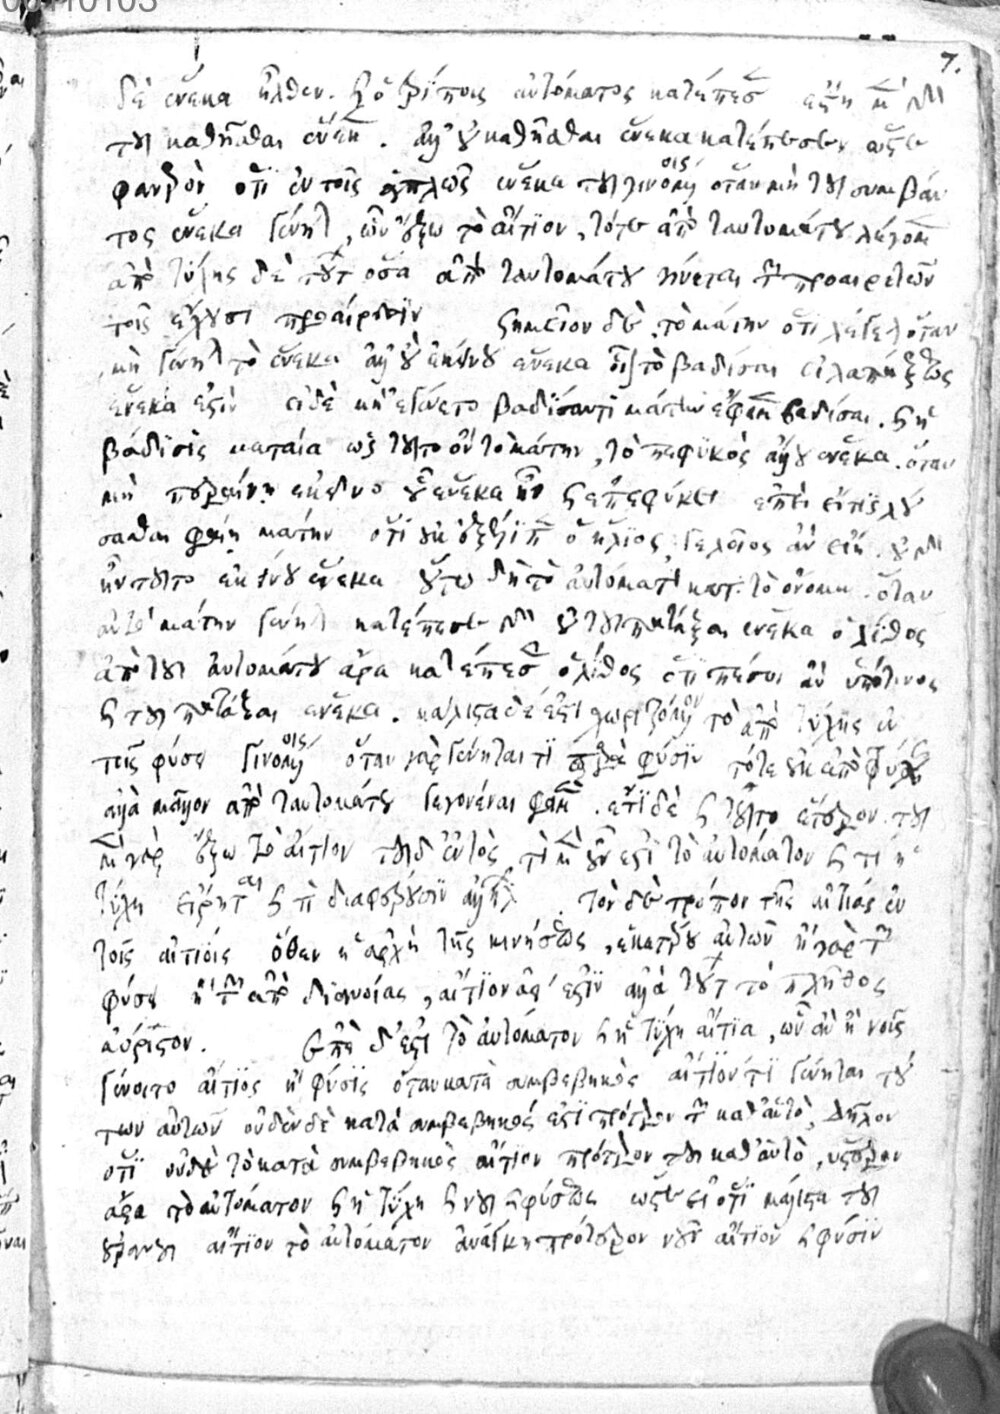 7.
δὲ ἕνεκα ἦλθεν. καὶ ὁ τρίπους αὐτόματος κατέπεσε ἔστη μὲν γὰρ
τοῦ καθῆσθαι ἕνεκα. ἀλλ' οὐ καθῆσθαι ἕνεκα κατέπεσεν ὥστε
φανερὸν ὅτι ἐν τοῖς ἁπλῶς ἕνεκα του γινομένοις ὅταν μὴ τοῦ συμβάν
τος ἕνεκα γένηται, ὧν ἔξω τὸ αἴτιον, τότε ἀπὸ ταυτομάτου λέγομεν
ἀπὸ τύχης δὲ τούτων ὅσα ἀπὸ ταυτομάτου γίνεται τῶν προαιρετῶν
τοῖς ἔχουσι προαίρεσιν σημεῖον δὲ τὸ μάτην ὅτι λέγεται ὅταν
μὴ γένηται τὸ ἕνεκα ἄλλου ἐκείνου ἕνεκα οἷον τὸ βαδίσαι εἰ λαπάξεως
ἕνεκά ἐστιν εἰ δὲ μὴ ἐγένετο βαδίσαντι μάτην ἔφαμεν βαδίσαι. καὶ ἡ
βάδισις ματαία ὡς τοῦτο ὂν τὸ μάτην, τὸ πεφυκὸς ἄλλου ἕνεκα. ὅταν
μὴ περαίνῃ ἐκεῖνο οὗ ἕνεκα ἦν καὶ ἐπεφύκει ἐπεὶ εἴ τις λού
σασθαι φαίη μάτην ὅτι οὐκ ἐξέλιπεν ὁ ἥλιος, γελοῖος ἂν εἴη. οὐ γὰρ
ἦν τοῦτο ἐκείνου ἕνεκα οὕτω δὴ τὸ αὐτόματον κατὰ τὸ ὄνομα. ὅταν
αὐτὸ μάτην γένηται κατέπεσε γὰρ οὐ τοῦ πατάξαι ἕνεκα ὁ λίθος
ἀπὸ τοῦ αὐτομάτου ἄρα κατέπεσεν ὁ λίθος ὅτι πέσοι ἂν ὑπό τινος
καὶ τοῦ πατάξαι ἕνεκα. μάλιστα δέ ἐστι χωριζόμενον τὸ ἀπὸ τύχης ἐν
τοῖς φύσει γινομένοις ὅταν γὰρ γένηταί τι παρὰ φύσιν τότε οὐκ ἀπὸ τύχης
ἀλλὰ μᾶλλον ἀπὸ ταυτομάτου γεγονέναι φαμέν. ἔτι δὲ καὶ τοῦτο ἕτερον. τοῦ
μὲν γὰρ ἔξω τὸ αἴτιον τοῦ δ' ἐντός τί μὲν οὖν ἐστι τὸ αὐτόματον καὶ τί ἡ
τύχη εἴρηται καὶ τί διαφέρουσιν ἀλλήλων τὸν δὲ τρόπον τῆς αἰτίας ἐν
τοῖς αἰτίοις ὅθεν ἡ ἀρχὴ τῆς κινήσεως, ἑκάτερον αὐτῶν ἢ γὰρ τῶν
φύσει ἢ τῶν ἀπὸ διανοίας, αἰτίων ἀεί ἐστιν ἀλλὰ τούτων τὸ πλῆθος
ἀόριστον. ἐπεὶ δ' ἐστι τὸ αὐτόματον καὶ ἡ τύχη αἴτια, ὧν ἂν ἢ νοῦς
γένοιτο αἴτιος ἢ φύσις ὅταν κατὰ συμβεβηκὸς αἴτιόν τι γένηται τού
των αὐτῶν οὐδὲν δὲ κατὰ συμβεβηκός ἐστι πρότερον τῶν καθ' αὑτό, δῆλον
ὅτι οὐδὲ τὸ κατὰ συμβεβηκὸς αἴτιον πρότερον τοῦ καθ' αὑτό, ὕστερον
ἄρα τὸ αὐτόματον καὶ ἡ τύχη καὶ νοῦ καὶ φύσεως ὥστε εἰ ὅτι μάλιστα τοῦ
οὐρανοῦ αἴτιον τὸ αὐτόματον ἀνάγκη πρότερον νοῦν αἴτιον καὶ φύσιν